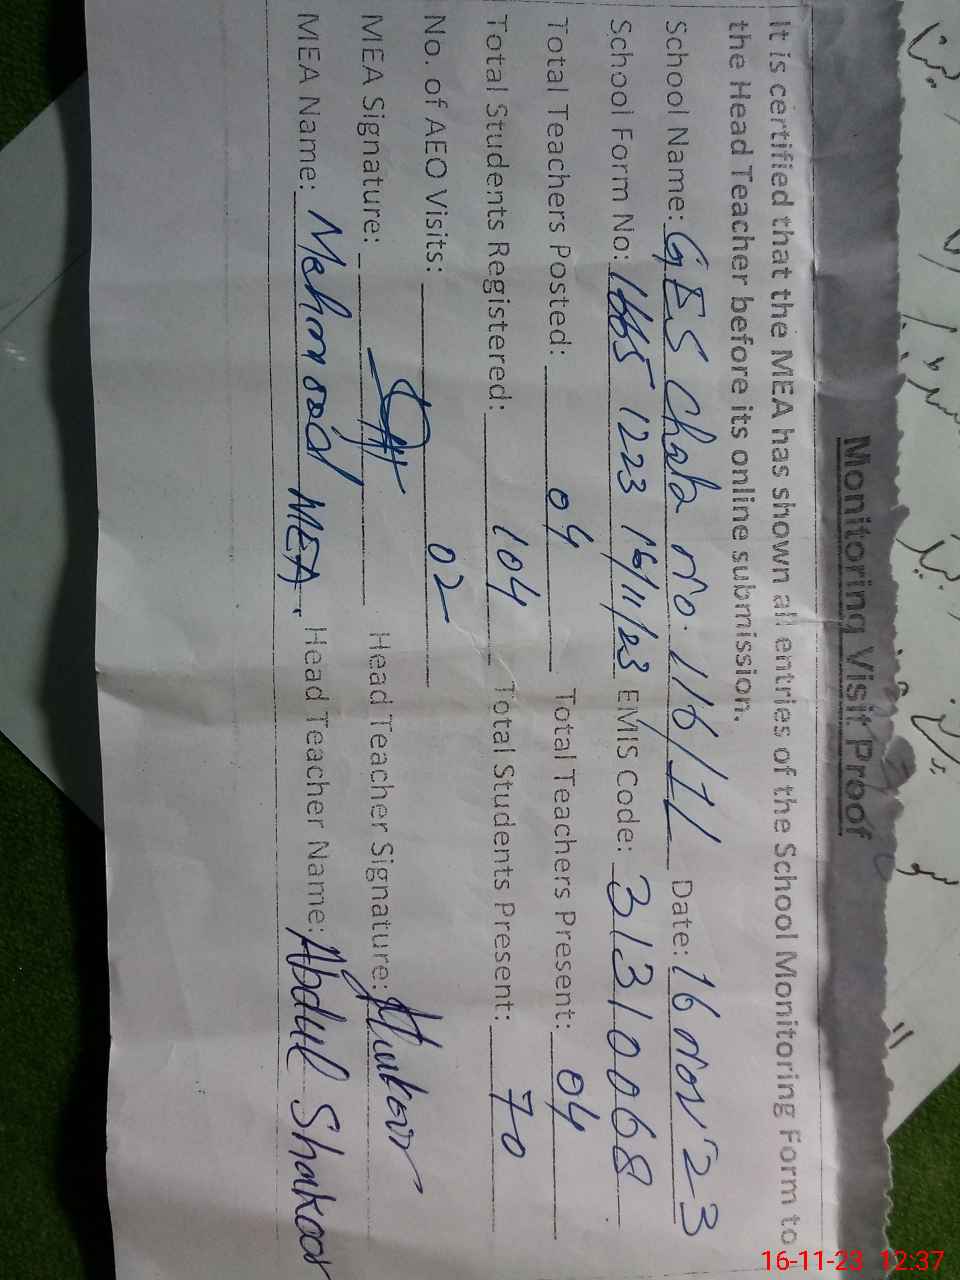 Monitoring Visit Proof
It is certified that the MEA has shown all entries of the School Monitoring Form to
the Head Teacher before its online submission.
School Name: GES Chak no. 116/1L Date: 16 nov 23
School Form No: 1665 1223 16/11/23 EMIS Code: 31310068
Total Teachers Posted: 04 Total Teachers Present: 04
Total Students Registered: 104 Total Students Present: 70
No. of AEO Visits: 02
MEA Signature: Head Teacher Signature:
MEA Name: Mehmood MEA. Head Teacher Name: Abdul Shakoor
16-11-23 12:37